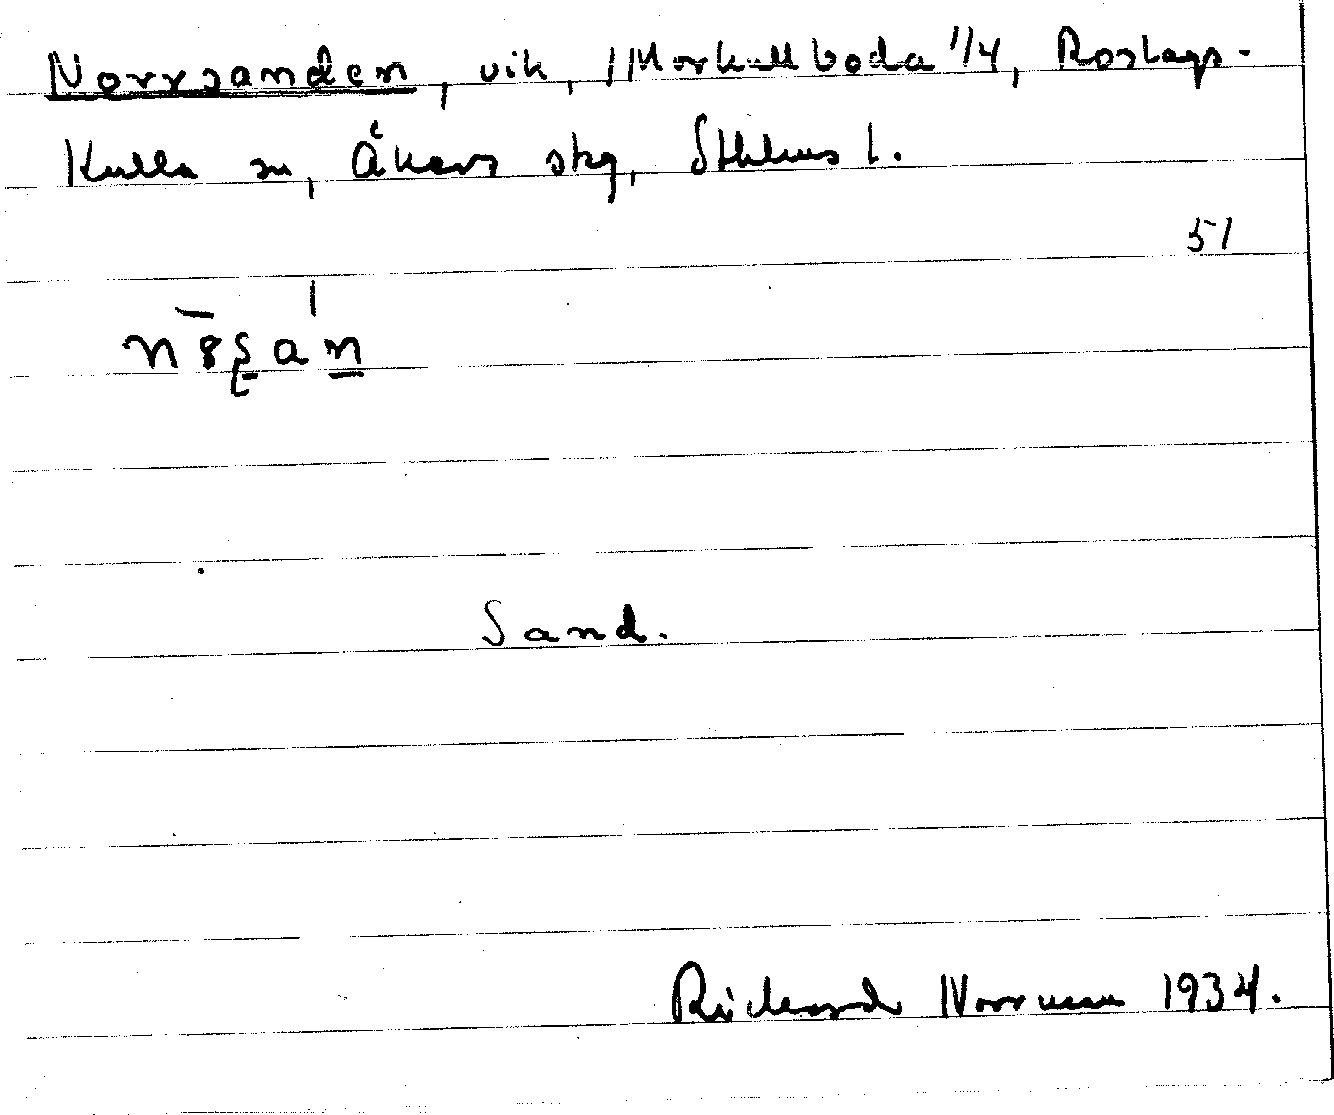 Norrsanden, vik, Morkullboda 1/4, Roslags-
Kulla sn, Åkers skg, Sthlms l.
51
Sand.
Rickard Norrman 1934.